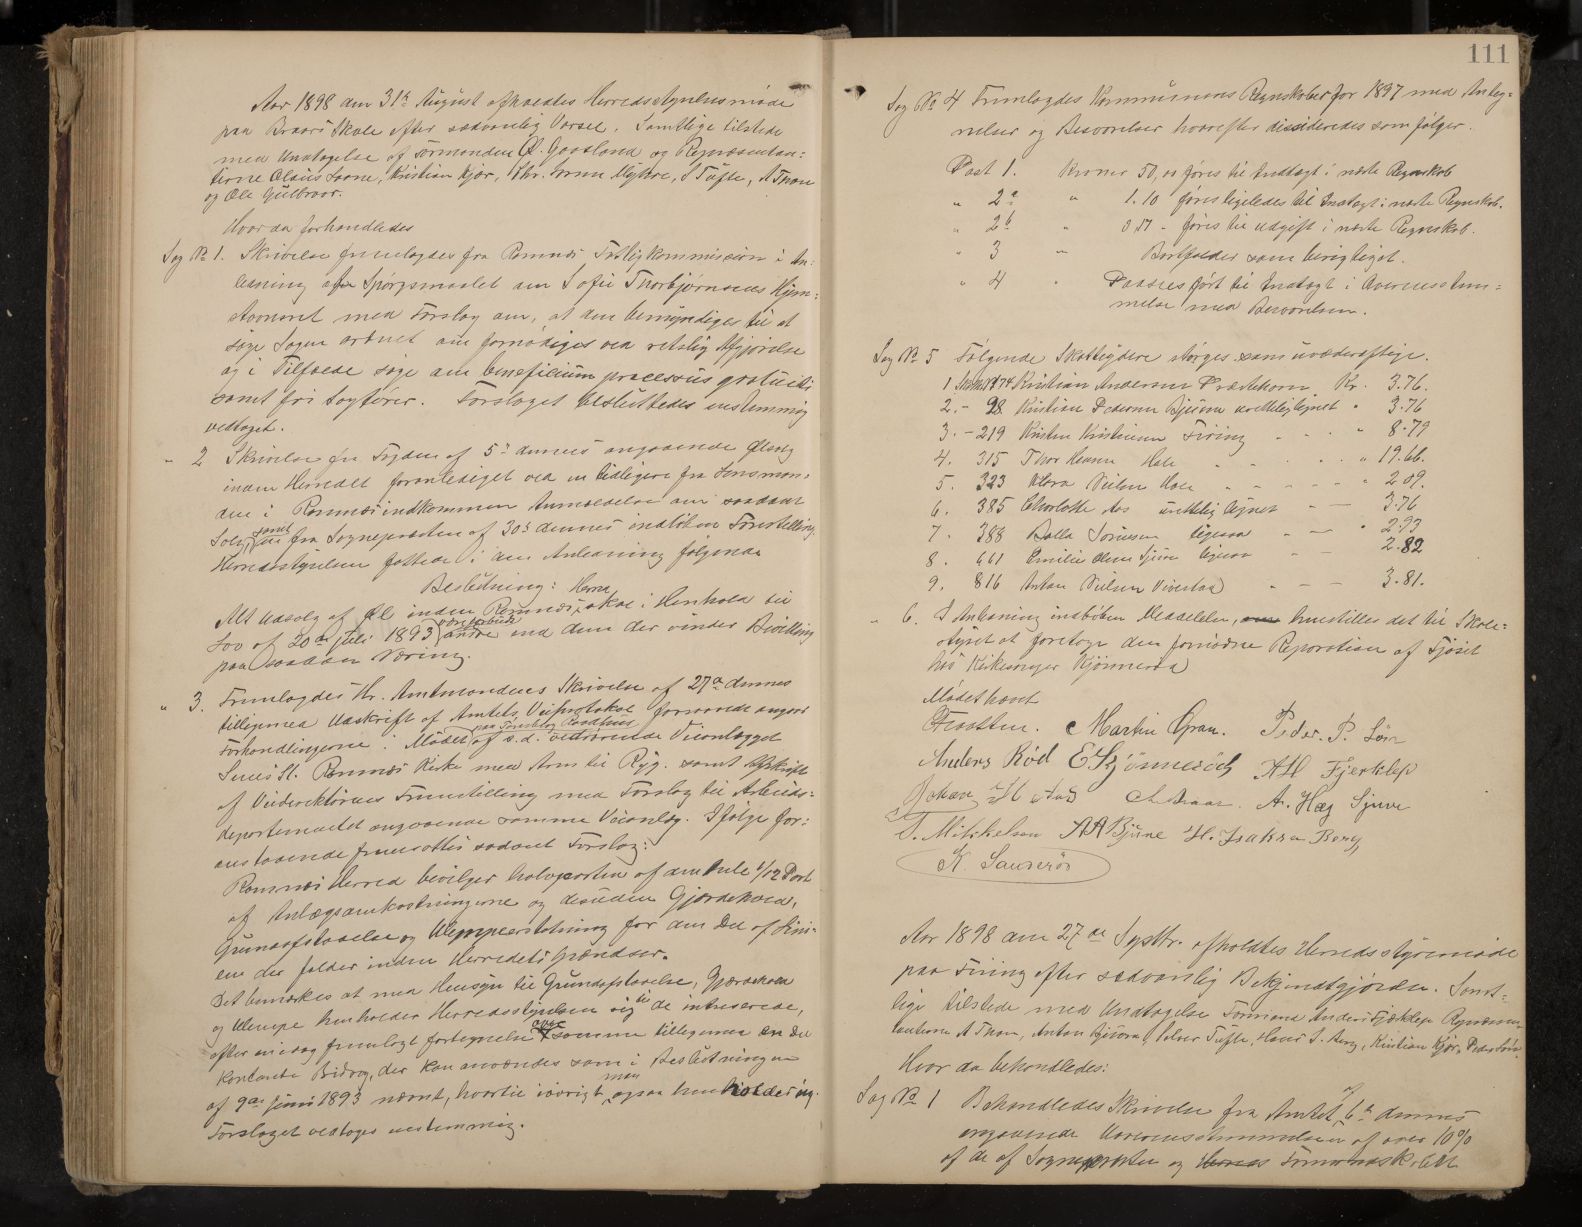 Aar 1898 den 31te August afholdtes Herredsstyrelsesmøde
paa Skole efter sædvanlig Varsel. Samtlige tilstede
med Undtagelse af Formanden O. Gaasland og Repræsentan-
terne Olaus Kristian Kjær, Chr. Myhre, S Tufte, A Thon
og Ole Gulbroar.
Hvor da forhandledes
Sag No 1. Skrivelse fremlagdes fra Ramnes Fattigkommission i An-
ledning af Spørgsmaalet om Sofie Thorbjørnsens Hjem-
stavnsret med Forslag om, at den bemyndiges til at
søge Sagen ordnet om fornødiges ved retslig Afgjørelse
og i Tilfælde søge om beneficium processus gratuiti
samt fri Sagfører. Forslaget besluttedes enstemmig
vedtaget.
" 2 Skrivelse fra Fogden af 5te dennes angaaende Ølsalg
inden Herredet foranlediget ved en tidligere fra Lensman-
den i Ramnes indkommen Anmeldelse om saadant
Salg, samt en fra Sognepræsten af 30te dennes indløben Forestilling.
Herredsstyrelsen fattede i den Anledning følgende
Beslutning:
Alt Udsalg af Øl inden Ramnes Herred skal i Henhold til
Lov af 20de Juli 1893 være forbudt andre end dem der vinder Bevilling
paa saadan Næring.
" 3. Fremlagdes Hr. Amtmandens Skrivelse af 27de dennes
tilligemed Udskrift af Amtets Veiprotokol forsaavidt angaar
Forhandlingerne i Mødet paa Tønsberg Raadhus af s.d. vedrørende Veianlægget
Ramnes Kirke med Arm til Ryg. samt Afskrift
af Veidirektørens Fremstilling med Forslag til Arbeids-
departementet angaaende samme Veianlæg. Ifølge for-
anstaaende fremsattes saadant Forslag:
Ramnes Herred bevilger halvparten af den hele 1/12 Part
af Anlægsomkostningerne og desuden Gjerdehold,
Grundafstaaelse og Ulempeerstatning for den Del af Lini-
en der falder inden Herredets Grændser.
Det bemærkes at med Hensyn til Grundafstaaelse, Gjærdehold
og Ulempe henholder Herredsstyrelsen sig til de interesserede,
efter en idag fremlagt fortegnelse over samme tilligemed en Del
kontante Bidrag, der kan anvendes som i Beslutningen
af 9de Juni 1893 nævnt, hvortil iøvrigt man ogsaa henholder sig.
Forslaget vedtoges enstemmig.
111
Sag No 4 Fremlagdes Kommunens Regnskaber for 1897 med Anteg-
nelser og Besvarelser hvorefter dissideredes som følger.
Post 1. Kroner 50,00 føres til Indtægt i næste Regnskab
" 2a " 1.10 føres ligeledes til Indtægt i næste Regnskab.
" 2b " 0,17 - føres til udgift i næste Regnskab.
" 3 " Bortfalder som berigtiget.
" 4 " Paasees ført til Indtægt i Overensstem-
melse med Besvarelsen.
Sag No 5 Følgende Skatteydere støges som uvederhæftige.
1 Kristian Andersen Prestehorn Kr. 3.76.
2. - 98 Kristian Pedersen Bjuerne " 3.76
3. - 219 Kristen Kristiansen Firing " 8.79
4. 315 Thor Hansen Hole " 19.66.
5. 323 Klara Nielsen Hole " 2.09.
6. 385 Charlotte Aas urettelig lignet 3.76
7. 388 ligesaa " 2.93
8. 661 Emilie Olsen ligesaa 2.82
9. 816 Anton Nielsen 3.81.
" 6. I Anledning indløben Meddelelse, henstilles det til Skole-
styret at foretage den fornødne Reparation af Fjøset
hos Kirkesanger Kjønnerød
Mødet hævet
Martin Gran. Peder. P. Løn
Anders Rød E Kjønnerød AH Fjerklep
Johan H Aas A. Hæg Sjuve
T. Mikkelsen AA Bjune H. Isaksen Berg
K Sauserød
Aar 1898 den 27de Septbr. afholdtes Herredsstyremøde
paa Firing efter sædvanlig Bekjendtgjørelse. Samt-
lige tilstede med Undtagelse Formand Anders Fjerklep Repræsen-
tanterne A Thon, Anton Bjuerne, Tufte, Hans S. Berg, Kristian Kjær, Peder Løn
Hvor da behandledes:
Sag No 1 Behandledes Skrivelse fra Amtet af 6te dennes
angaaende Overensstemmelsen af over 10%
af de af Sognepræsten og Herreds Formandskabet